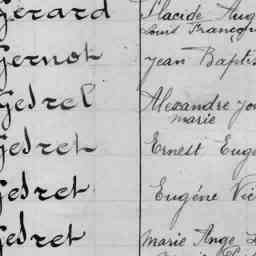 Gérard Placide Aug
Louis François
Gernot Jean Baptis
Gesrel Alexandre Jo
Marie
Gesret Ernest Eugè
Gesret Eugène Vic
Gesret Marie Ange